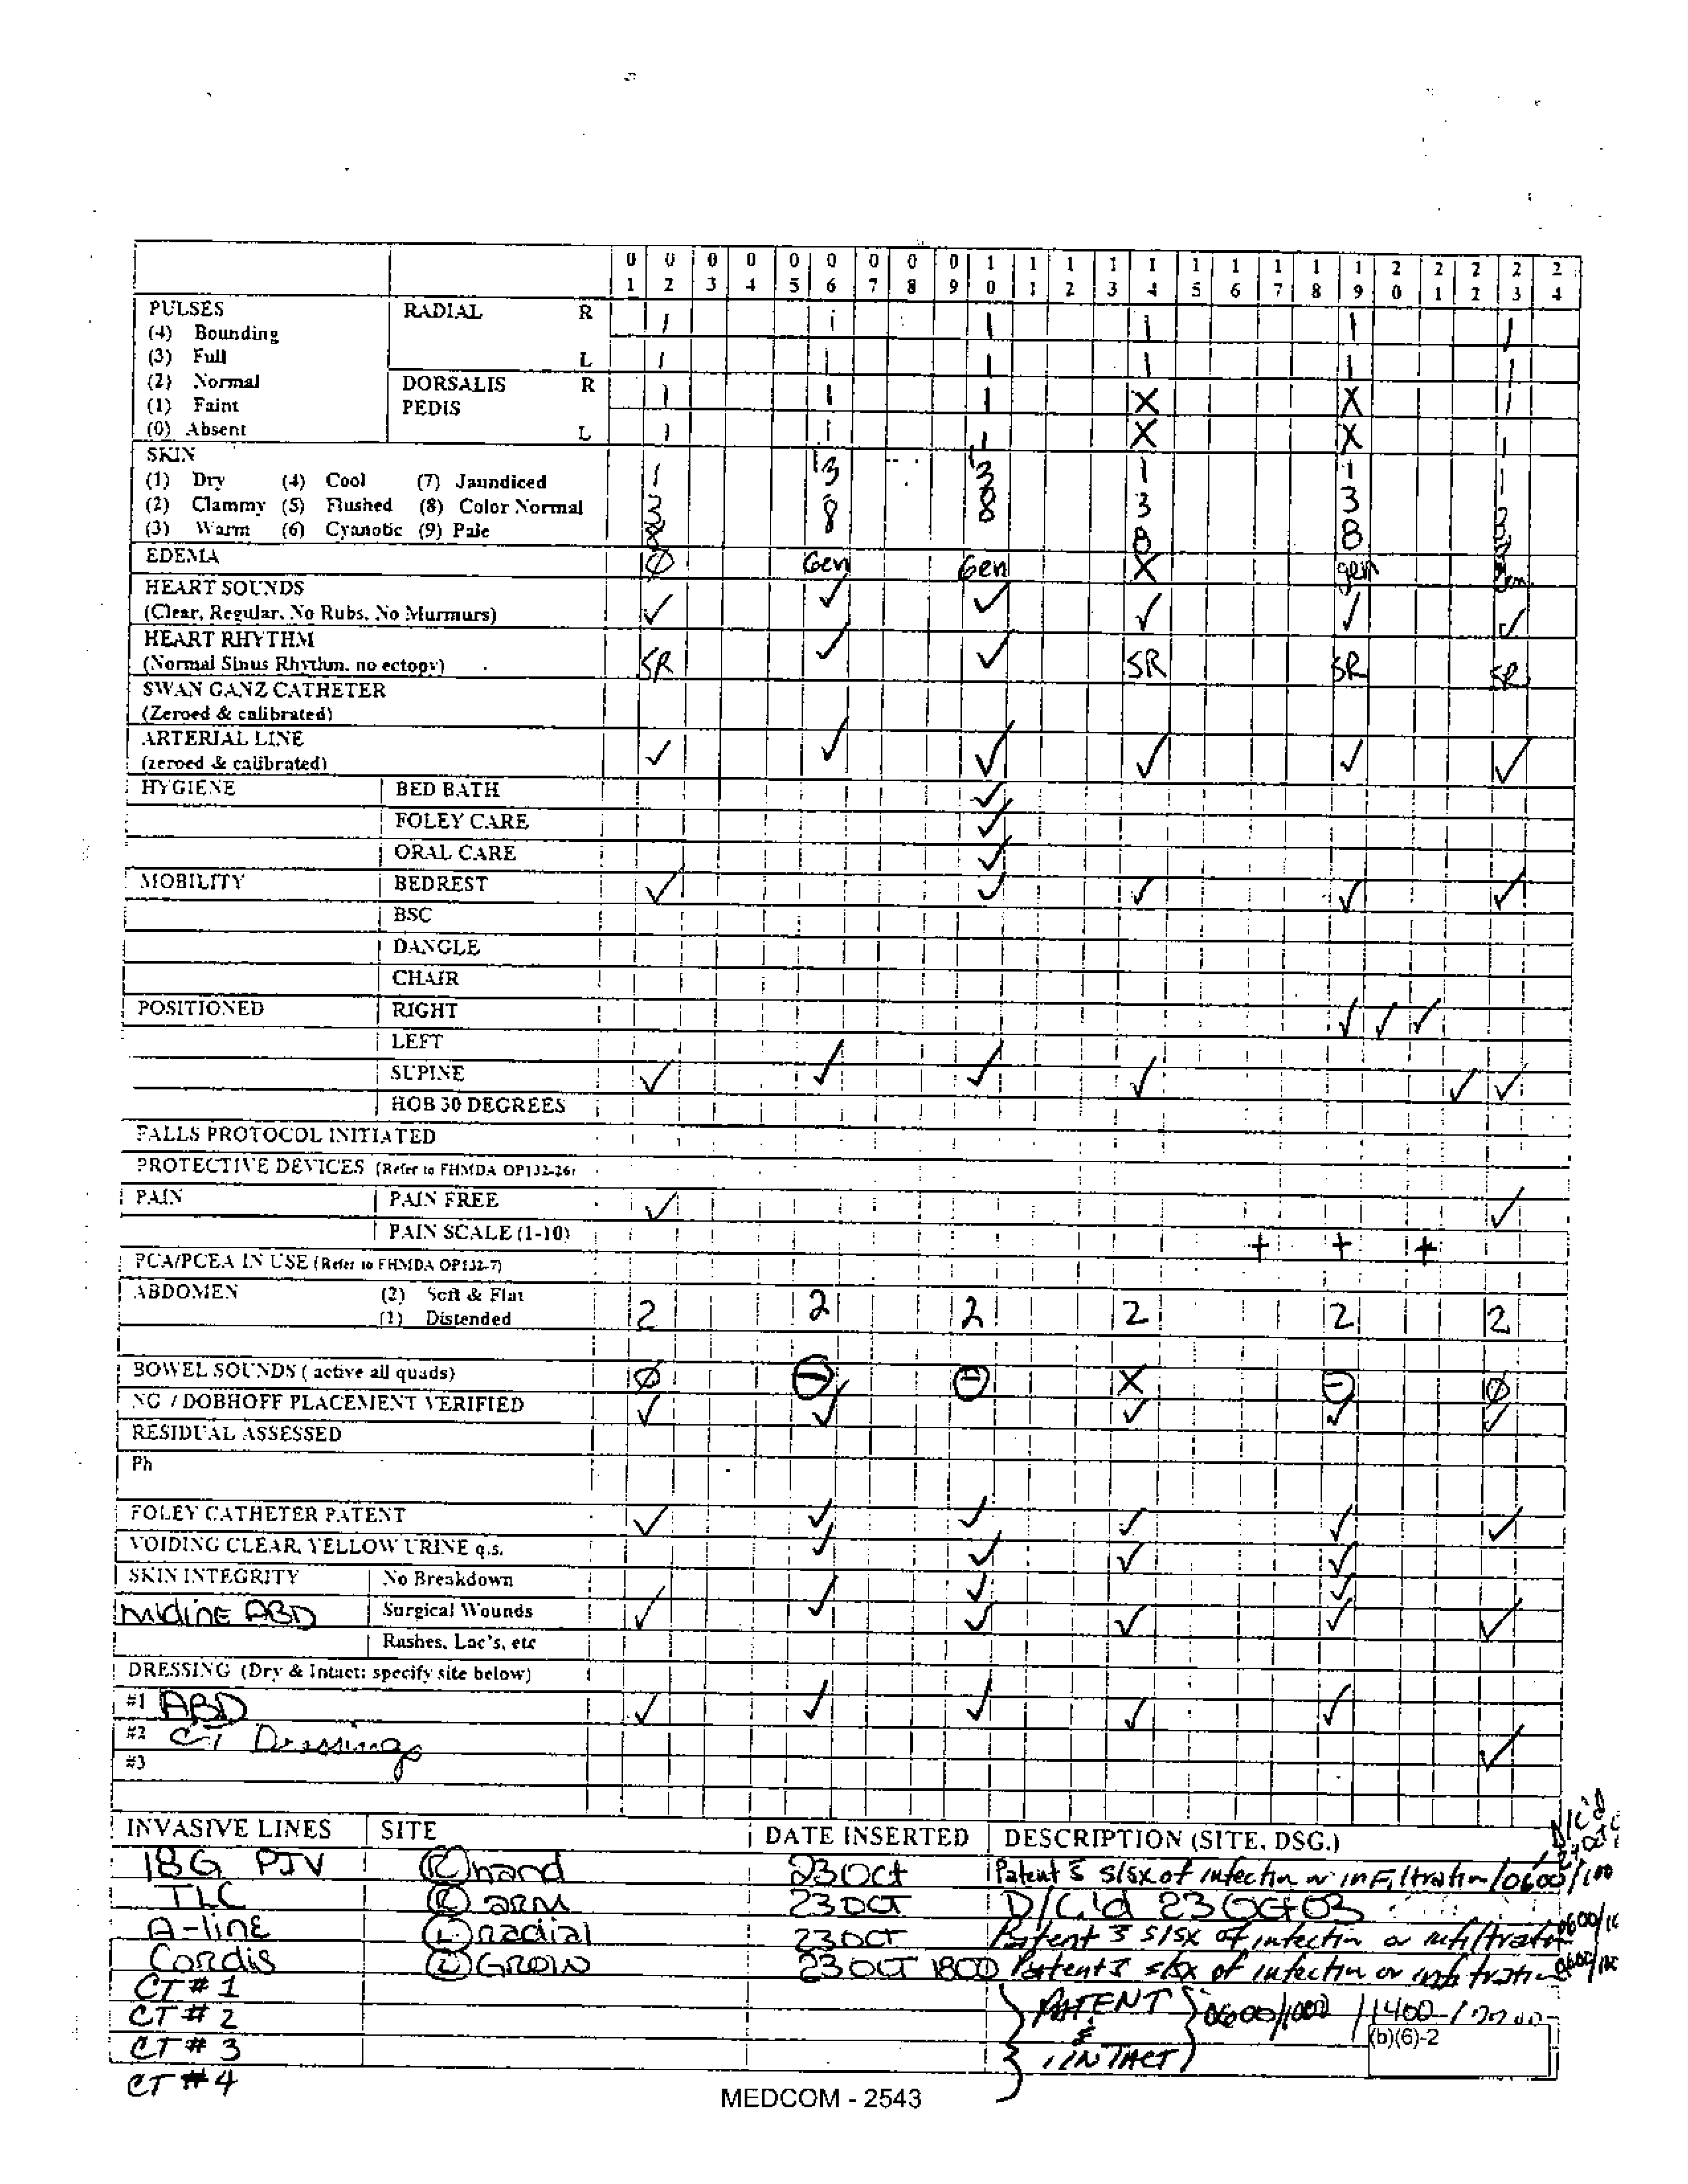 01 02 03 04 05 06 07 08 09 10 11 12 13 14 15 16 17 18 19 20 21 22 23 24
PULSES RADIAL R 1 1 1 1 1 1
(4) Bounding
(3) Full L 1 1 1 1 1 1
(2) Normal DORSALIS R 1 1 1 X X 1
(1) Faint PEDIS
(0) Absent L 1 1 1 X X 1
SKIN 1 13 13 1 1 1
(1) Dry (4) Cool (7) Jaundiced
(2) Clammy (5) Flushed (8) Color Normal 3 8 8 3 3 3
(3) Warm (6) Cyanotic (9) Pale 8 8 8
EDEMA Ø Gen Gen X gen Gen
HEART SOUNDS
(Clear, Regular, No Rubs, No Murmurs) ✓ ✓ ✓ ✓ ✓ ✓
HEART RHYTHM
(Normal Sinus Rhythm, no ectopy) SR ✓ ✓ SR SR SR
SWAN GANZ CATHETER
(Zeroed & calibrated)
ARTERIAL LINE
(zeroed & calibrated) ✓ ✓ ✓ ✓ ✓ ✓
HYGIENE BED BATH ✓
FOLEY CARE ✓
ORAL CARE ✓
MOBILITY BEDREST ✓ ✓ ✓ ✓ ✓
BSC
DANGLE
CHAIR
POSITIONED RIGHT ✓ ✓ ✓
LEFT
SUPINE ✓ ✓ ✓ ✓ ✓ ✓
HOB 30 DEGREES
FALLS PROTOCOL INITIATED
PROTECTIVE DEVICES (Refer to FHMDA OP132-26)
PAIN PAIN FREE ✓ ✓
PAIN SCALE (1-10) + + +
PCA/PCEA IN USE (Refer to FHMDA OP132-7)
ABDOMEN (2) Soft & Flat
(1) Distended 2 2 2 2 2 2
BOWEL SOUNDS ( active all quads) Ø ⊖ ⊖ X ⊖ Ø
NG / DOBHOFF PLACEMENT VERIFIED ✓ ✓ ✓ ✓ ✓
RESIDUAL ASSESSED
Ph
FOLEY CATHETER PATENT ✓ ✓ ✓ ✓ ✓ ✓
VOIDING CLEAR, YELLOW URINE q.s. ✓ ✓ ✓ ✓
SKIN INTEGRITY No Breakdown ✓ ✓
Midline ABD Surgical Wounds ✓ ✓ ✓ ✓ ✓ ✓
Rashes, Lac's, etc
DRESSING (Dry & Intact: specify site below)
#1 ABD ✓ ✓ ✓ ✓ ✓
#2 CT Dressings ✓
#3
D/C'd
INVASIVE LINES SITE DATE INSERTED DESCRIPTION (SITE, DSG.)
18G PIV (R) hand 23 Oct Patent s̄ s/sx of infection or infiltration /0600/
TLC (R) arm 23 OCT D/C'd 23 Oct 03
A-line (L) radial 23 OCT Patent s̄ s/sx of infection or infiltration 0600/
Cordis GROIN 23 OCT 1800 Patent s̄ s/sx of infection or infiltration 0600/
CT # 1
CT # 2 PATENT 0600/1000 /1400
CT # 3 & INTACT (b)(6)-2
CT # 4
MEDCOM - 2543